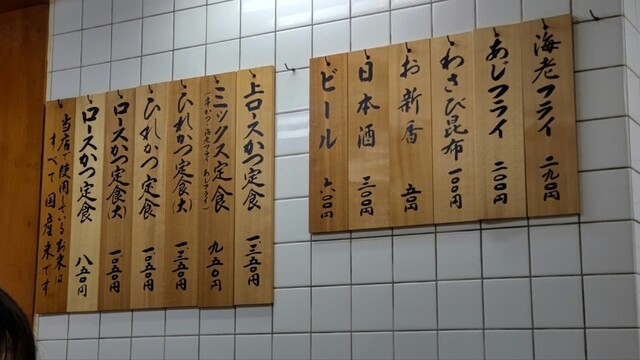 海老フライ 二九〇円
あじフライ 二〇〇円
わさび昆布 一〇〇円
お新香 五〇円
日本酒 三〇〇円
ビール 六〇〇円
上ロースかつ定食 一、三五〇円
ミックス定食 九五〇円
(串かつ・海老フライ・あじフライ)
ひれかつ定食(大) 一、三五〇円
ひれかつ定食 一、〇五〇円
ロースかつ定食(大) 一、〇五〇円
ロースかつ定食 八五〇円
当店で使用しているお米は
すべて国産米です